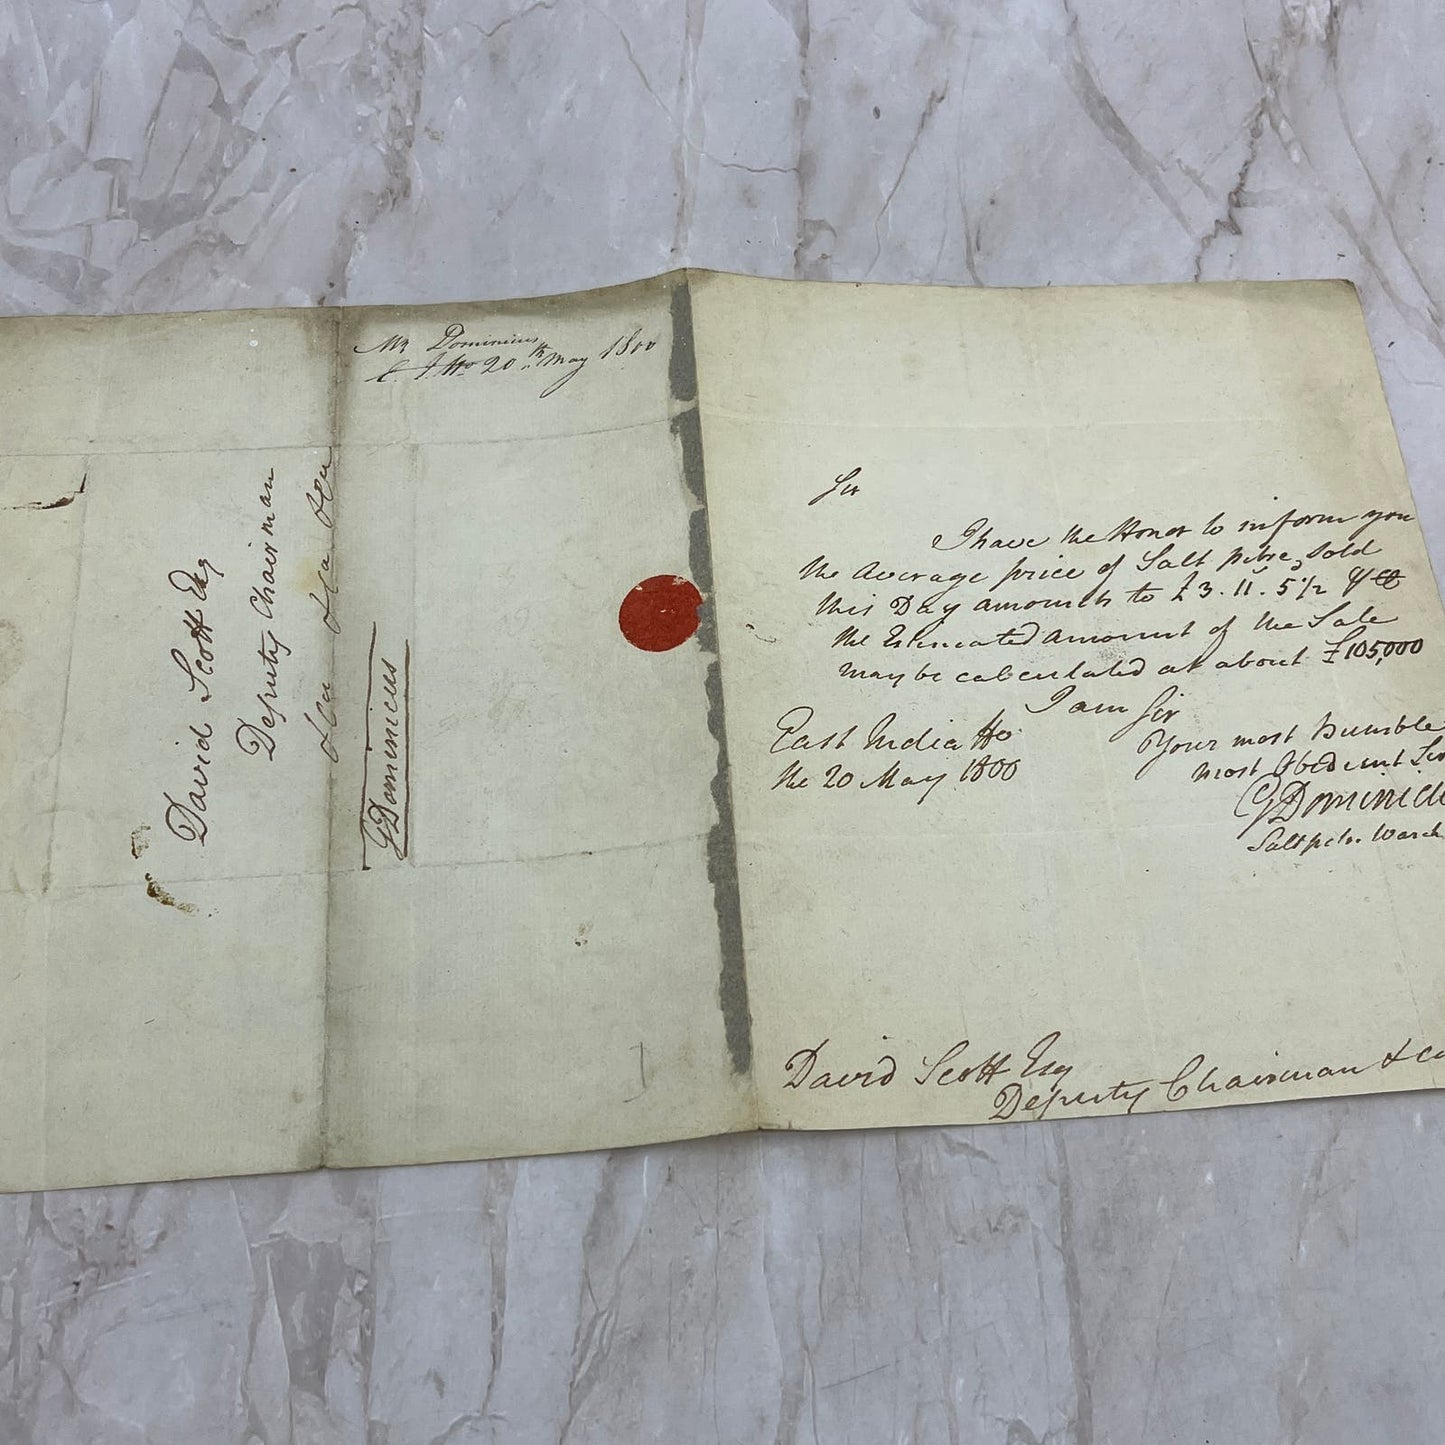 Mr Dominicus
E. I. Ho 20th May 1800
David Scott Esq
Deputy Chairman
&ca &ca &ca
GDominicus
Sir
I have the Honor to inform you
the Average price of Salt petre, Sold
this Day amounts to £3. 11. 5 1/2 ⅌ Ct
the Estimated amount of the Sale
may be calculated at about £105,000
I am Sir
Your most humble
most Obedient Ser
GDominic
Saltpetre Wareh
East India Ho
the 20 May 1800
David Scott Esq
Deputy Chairman &ca